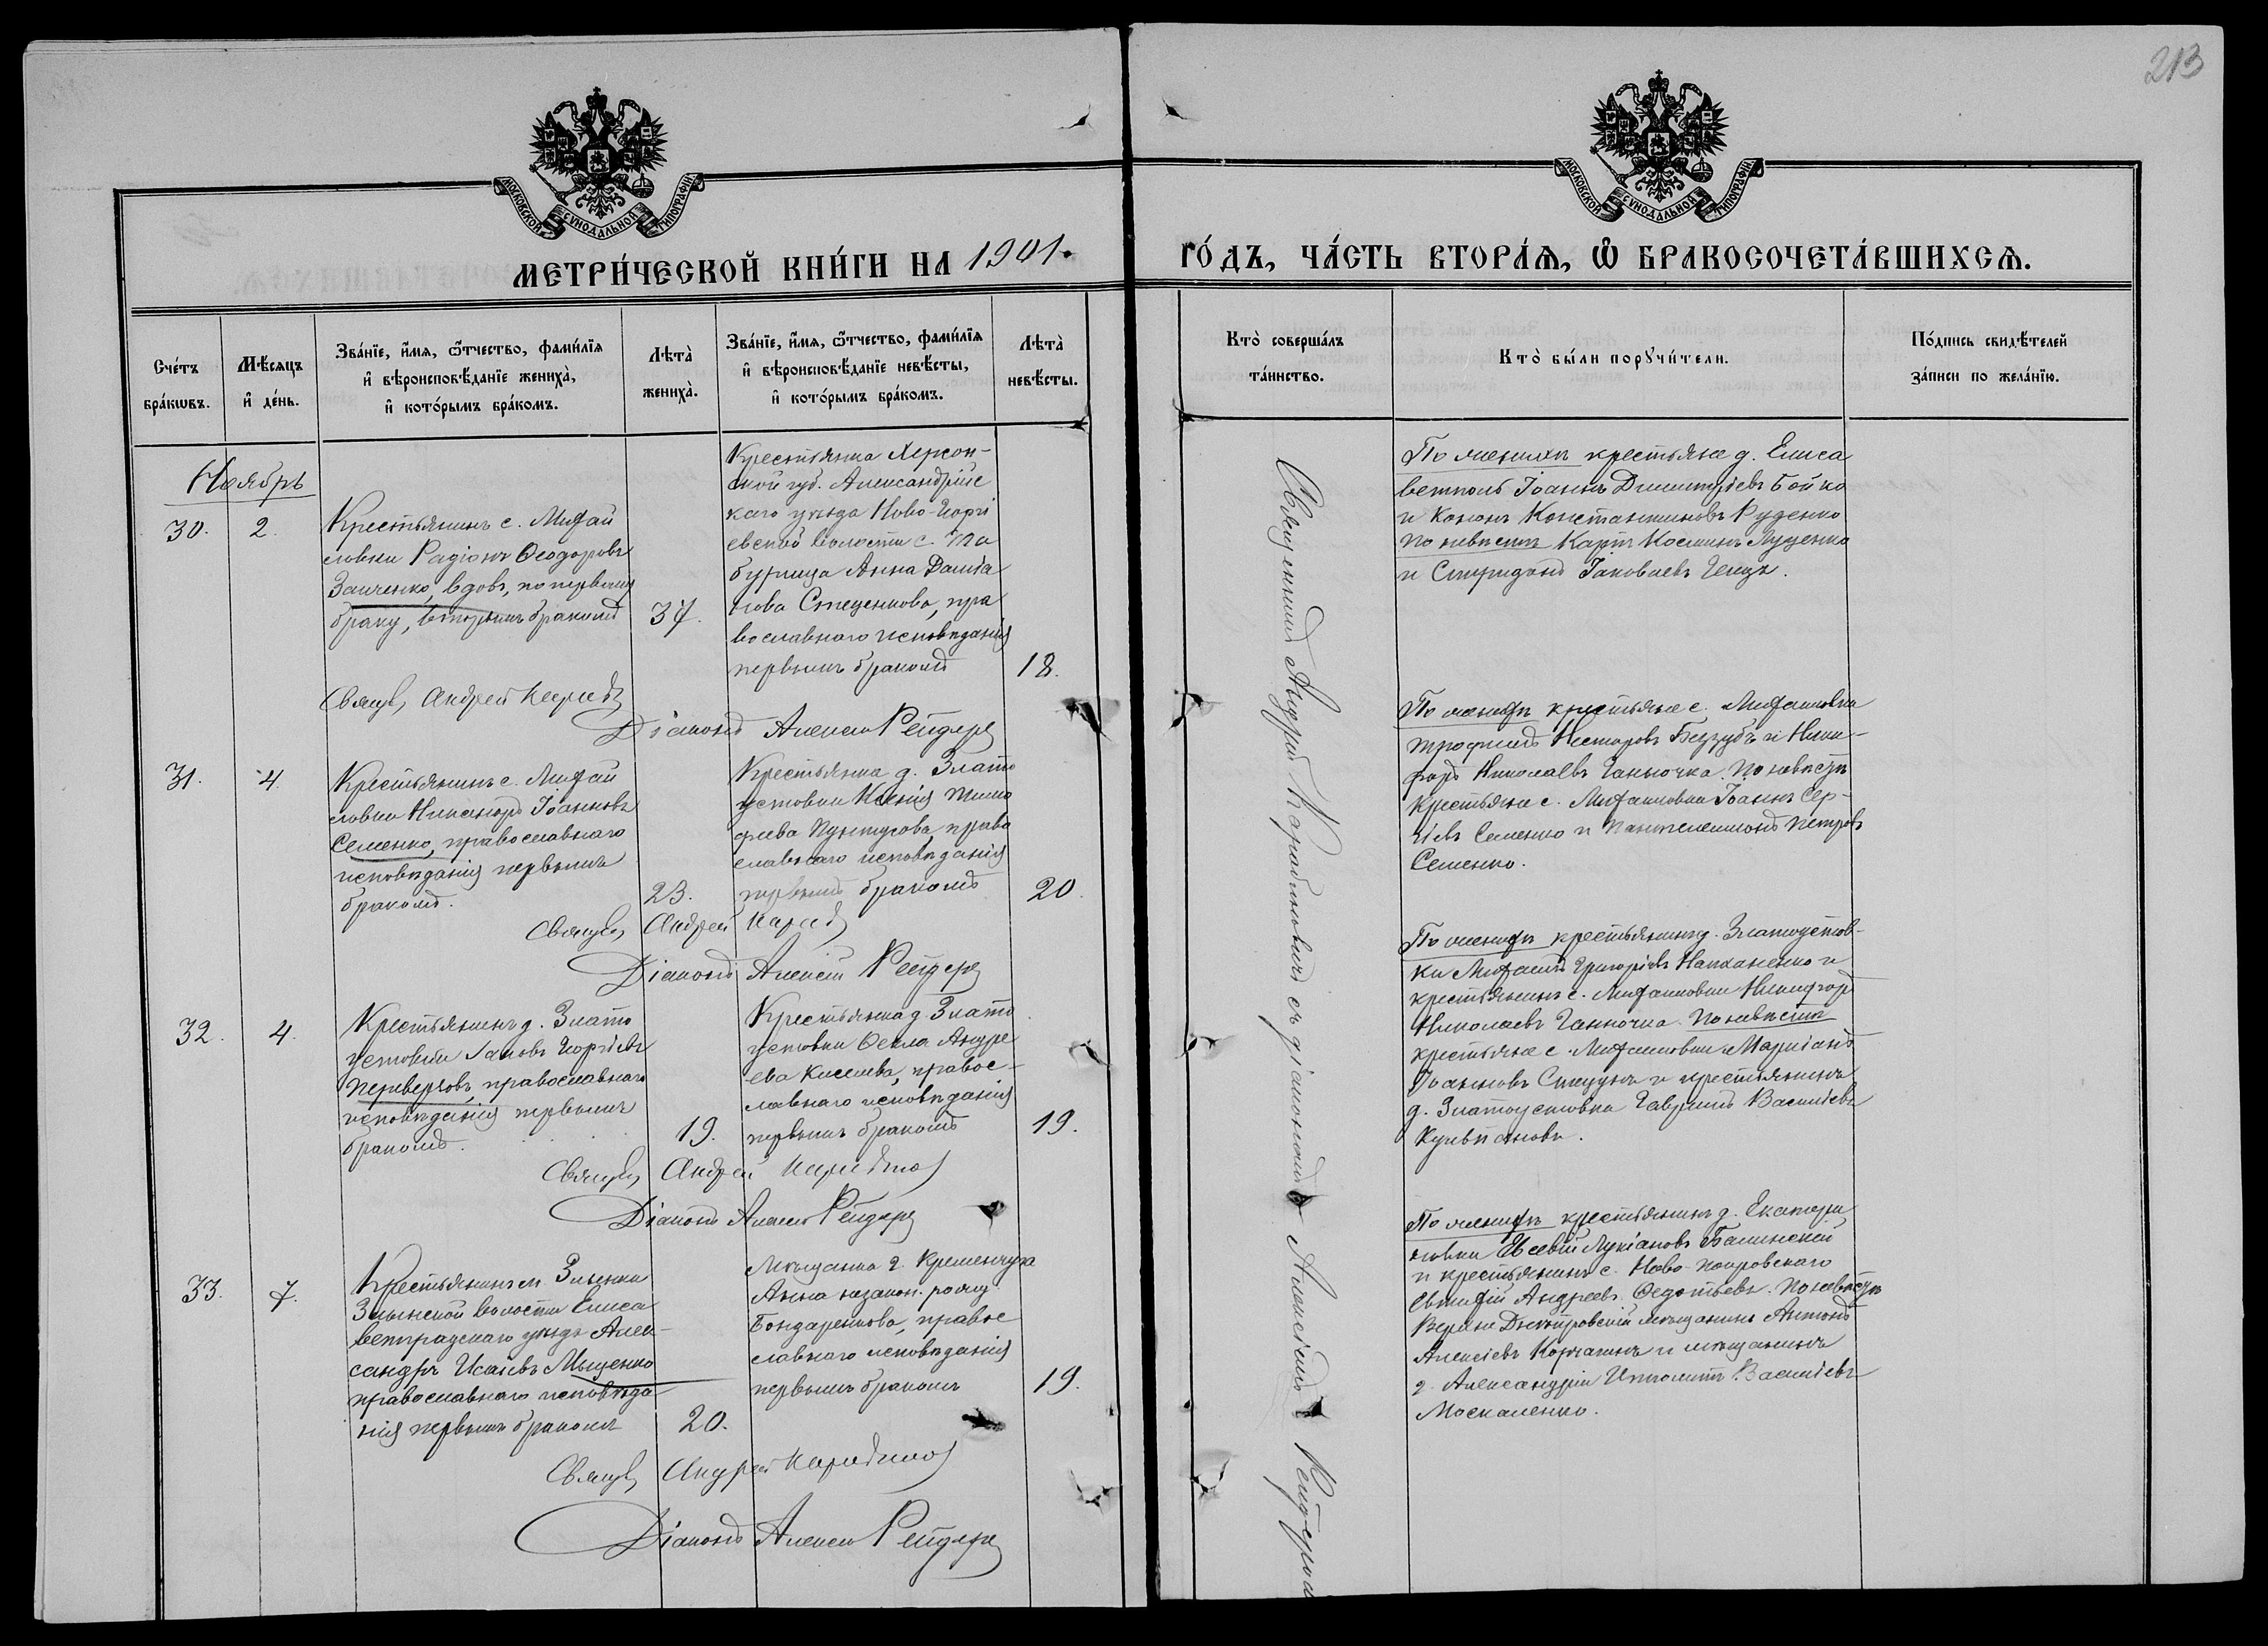 213
МОСКОВСКОЙ СѴНОДАЛЬНОЙ ТИПОГРАФІИ
МОСКОВСКОЙ СѴНОДАЛЬНОЙ ТИПОГРАФІИ
МЕТРИ́ЧЕСКОЙ КНИ́ГИ НА 1901. ГО́ДЪ, ЧА́СТЬ ВТОРА́Ѧ, Ѽ БРАКОСОЧЕТА́ВШИХСѦ.
Сче́тъ
бра́кѡвъ.
Мѣ́сѧцъ
и҆ де́нь.
Зва́нїе, и҆́мѧ, ѻ҆́тчество, фами́лїѧ
и҆ вѣроисповѣ́данїе жениха̀,
и҆ кото́рымъ бра́комъ.
Лѣта̀
жениха̀.
Зва́нїе, и҆́мѧ, ѻ҆́тчество, фами́лїѧ
и҆ вѣроисповѣ́данїе невѣ́сты,
и҆ кото́рымъ бра́комъ.
Лѣта̀
невѣ́сты.
Кто̀ соверша́лъ
та́инство.
Кто̀ бы́ли порꙋчи́тели.
По́дпись свидѣ́телей
за́писи по жела́нїю.
Ноябрь
30.
2.
Крестьянинъ с. Михай
ловки Радіонъ Ѳеодоровъ
Заиченко, вдов, по первому
браку, вторымъ бракомъ
37.
Крестьянка Херсон-
ской губ. Александрійс
каго уѣзда Ново-Георгі
евской волости с. Та
бурища Анна Даміа
нова Стеценкова, пра
вославнаго исповѣданія
первымъ бракомъ
18.
Священникъ Андрей Карабиновичъ съ діакономъ Алексіемъ Рейдеромъ
По женихѣ крестьяне д. Елиса
ветполь Іоаннъ Димитріевъ Бойко
и Кононъ Константиновъ Руденко
по невѣстѣ Карпъ Косминъ Луценко
и Спиридонъ Іаковлевъ
Свящ. Андрей
Діаконъ Алексій Рейдеръ
31.
4.
Крестьянинъ с. Михай
ловки Никаноръ Іоанновъ
Семенко, православнаго
исповѣданія первымъ
бракомъ.
23.
Крестьянка д. Злато
устовки Ксенія Тимо
феева Пунтусова, право
славнаго исповѣданія
первымъ бракомъ
20.
По женихѣ крестьяне с. Михайловки
Трофимъ Несторовъ Беззубъ и Ники-
форъ Николаевъ Ганночка. По невѣстѣ
крестьяне с. Михайловки Іоаннъ Сер-
гіевъ Семенко и Пантелеимонъ Петровъ
Семенко.
Свящ. Андрей
Діаконъ Алексій Рейдеръ
32.
4.
Крестьянинъ д. Злато
устовки Іаковъ Георгіевъ
Переверзовъ, православнаго
исповѣданія первымъ
бракомъ.
19.
Крестьянка д. Злато
устовки Ѳекла Андре
ева Киселева, правос-
лавнаго исповѣданія
первымъ бракомъ
19.
По женихѣ крестьянинъ д. Златоустов-
ки Михаилъ Григоріевъ Наханенко и
крестьянинъ с. Михайловки Никифоръ
Николаевъ Ганночка. По невѣстѣ
крестьяне с. Михайловки Маркіанъ
Іоанновъ и крестьянинъ
д. Златоустовки Гавріилъ Василіевъ
Свящ. Андрей
Діаконъ Алексій Рейдеръ
33.
7.
Крестьянинъ м. Злынки
Злынской волости Елиса
ветградскаго уѣзда Алек-
сандръ Исаіевъ Мищенко
православнаго исповѣда
нія первымъ бракомъ
20.
Мѣщанка г. Кременчуга
Анна незакон. рожд.
Бондаренкова, правос
славнаго исповѣданія
первымъ бракомъ
19.
По женихѣ крестьянинъ д. Екатери
новки Евсевій Лукіановъ Балинскій
и крестьянинъ с. Ново-Покровскаго
Евтихій Андреевъ Ѳедотьевъ. По невѣстѣ
Верхне Днѣпровскій мѣщанинъ Антонъ
Алексіевъ Корчагинъ и мѣщанинъ
г. Александріи Ипполитъ Василіевъ
Москаленко.
Свящ. Андрей
Діаконъ Алексій Рейдеръ